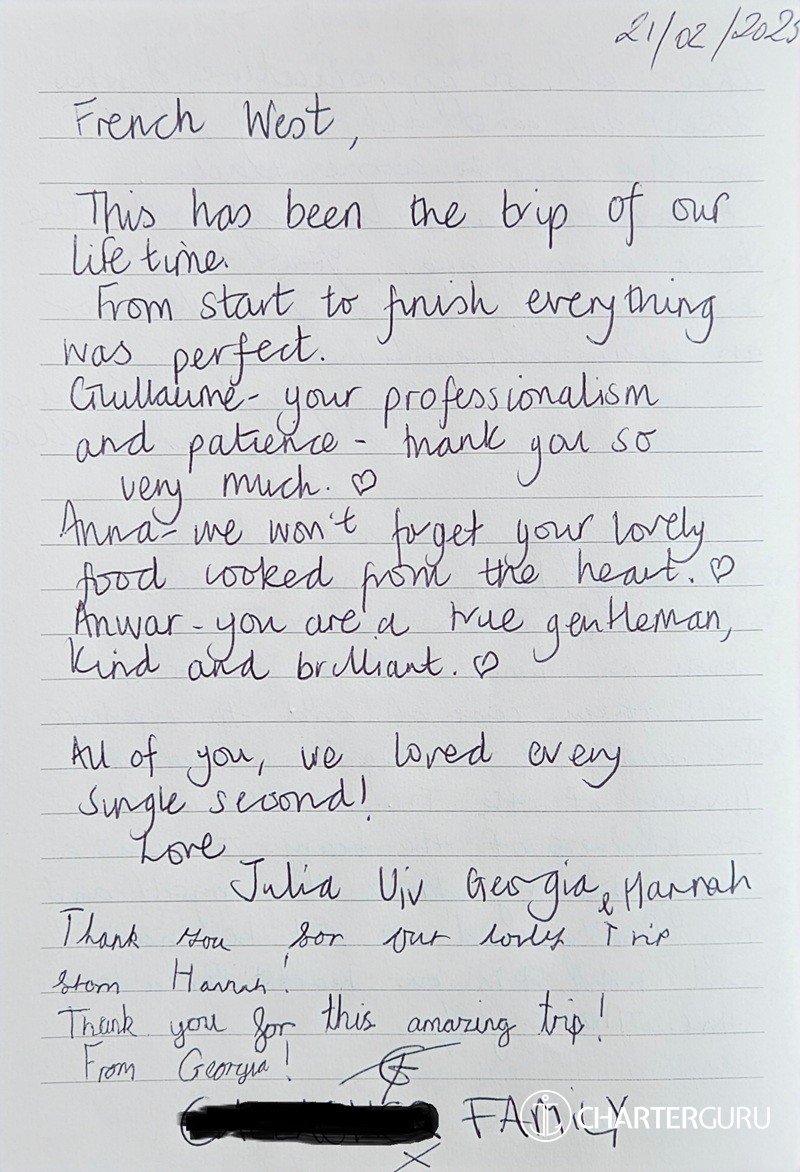 21/02/2025
French West,
This has been the trip of our
life time.
From start to finish everything
was perfect.
Guillaume - your professionalism
and patience - thank you so
very much. ♡
Anna - we won't forget your lovely
food cooked from the heart. ♡
Anwar - you are a true gentleman,
kind and brilliant. ♡
All of you, we loved every
single second!
Love
Julia Viv Georgia & Hannah
Thank you for our lovely Trip
from Hannah!
Thank you for this amazing trip!
From Georgia!
FAMILY
x
CHARTERGURU